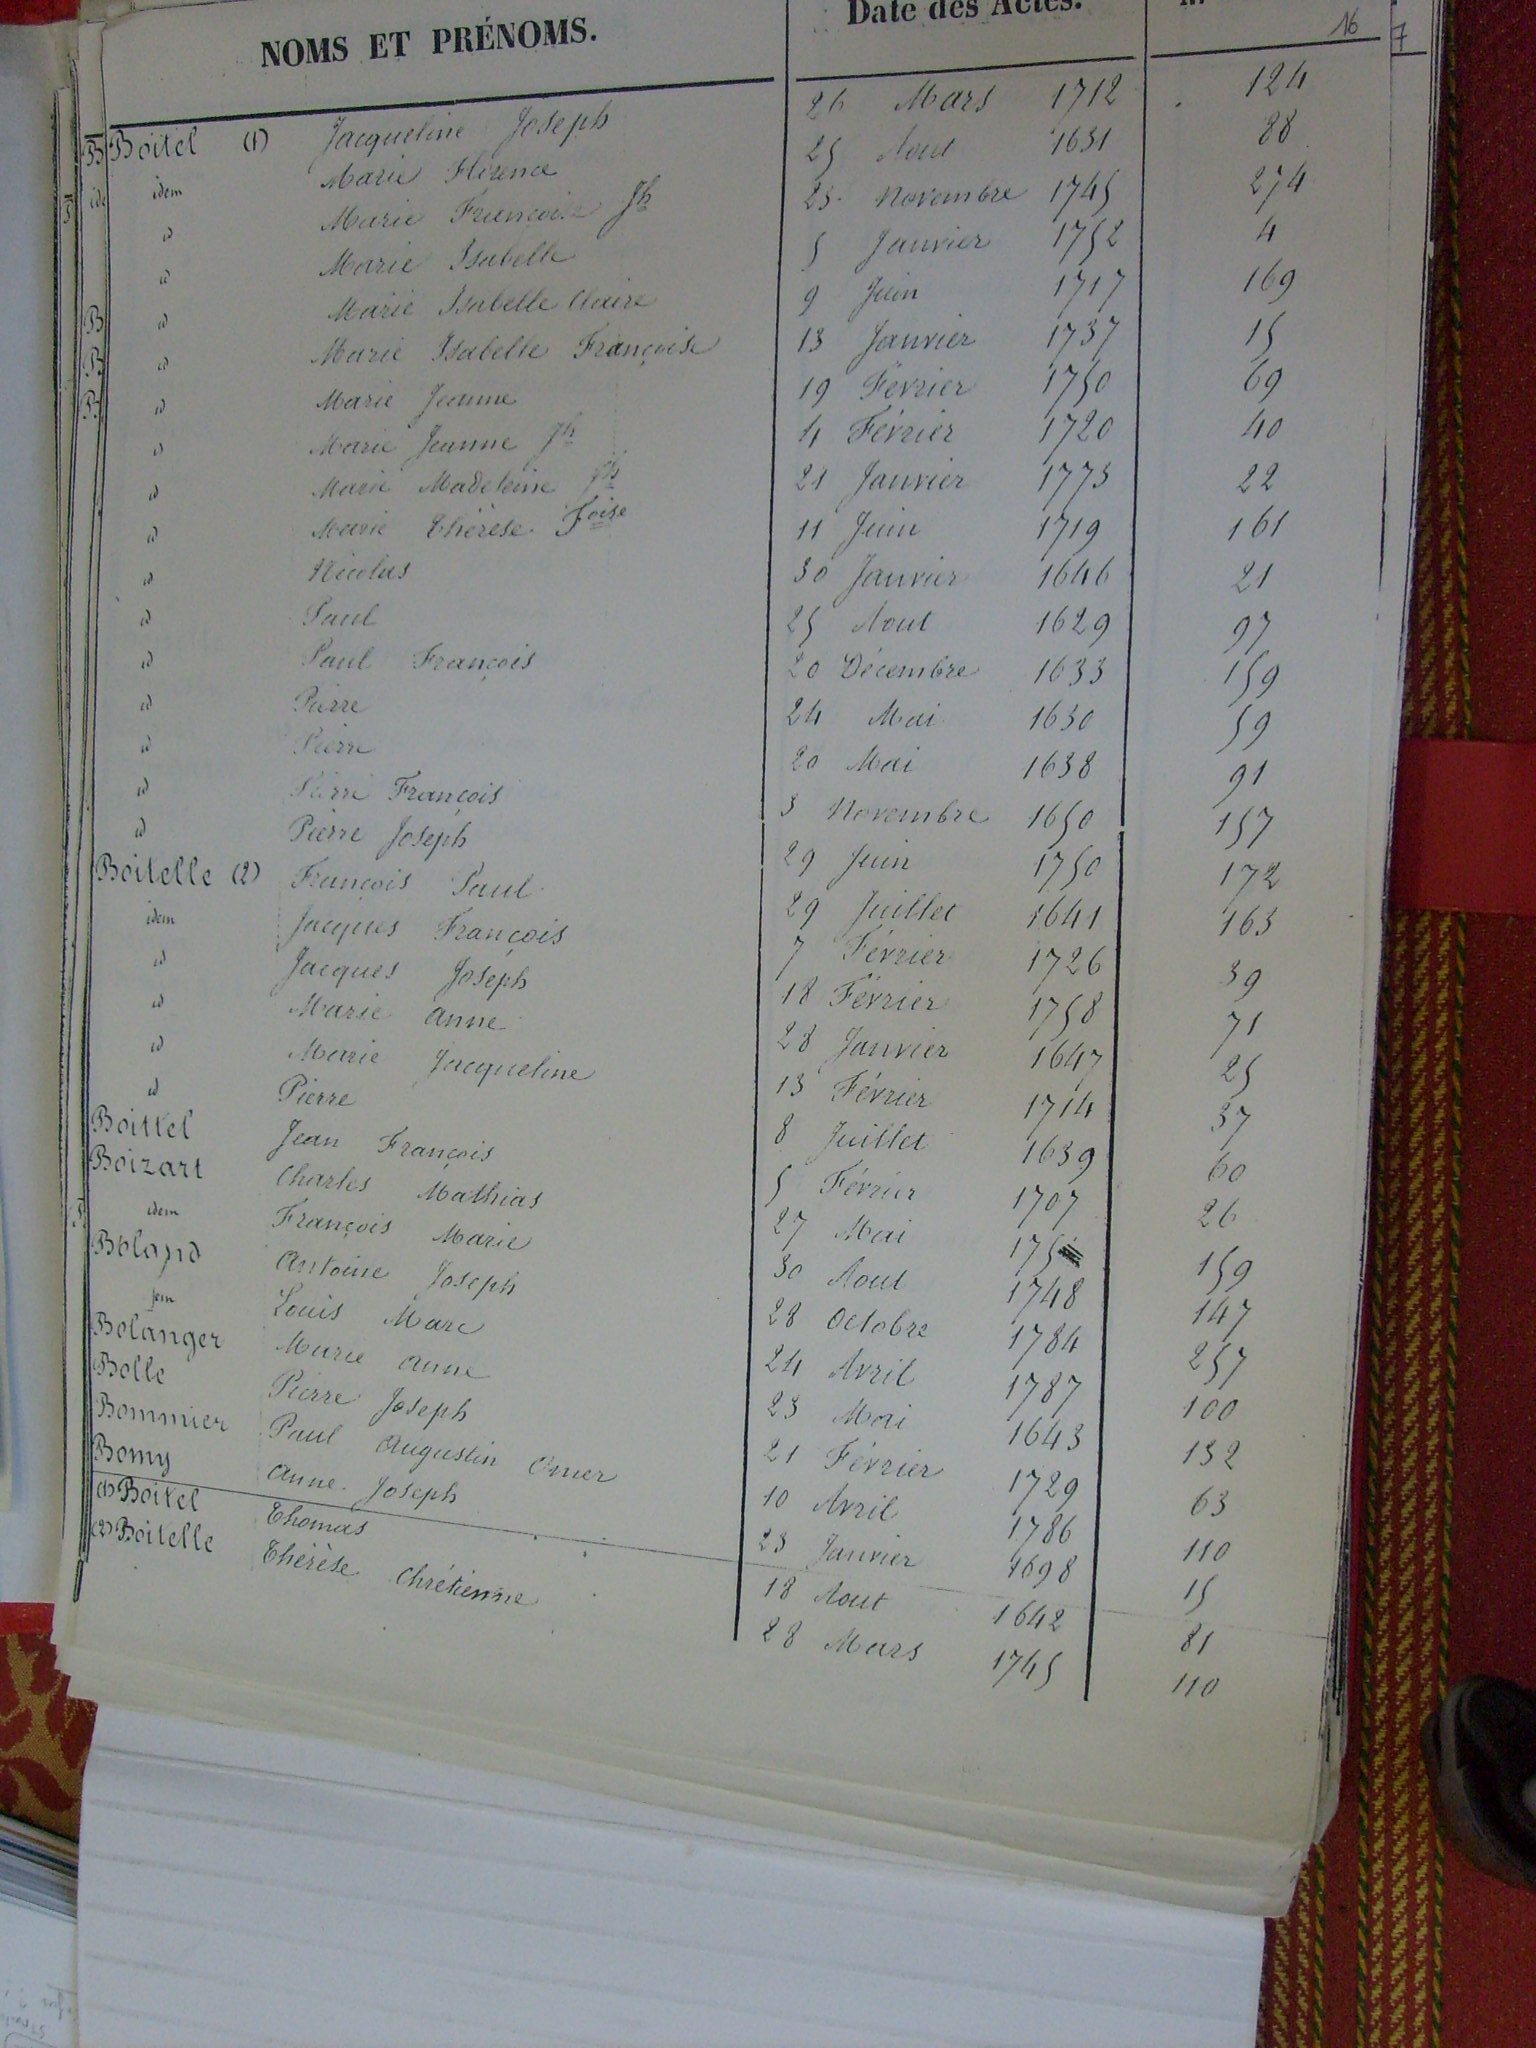 NOMS ET PRÉNOMS. Date des Actes.
16 7
Boitel (1) Jacqueline Joseph 26 Mars 1712 124
idem Marie Florence 25 Aout 1631 88
id Marie Françoise Jh 23 Novembre 1745 274
id Marie Isabelle 5 Janvier 1752 4
id Marie Isabelle Claire 9 Juin 1717 169
id Marie Isabelle Françoise 13 Janvier 1737 15
id Marie Jeanne 19 Février 1750 69
id Marie Jeanne Jh 4 Février 1720 40
id Marie Madeleine Jh 21 Janvier 1773 22
id Marie Thérèse Foise 11 Juin 1719 161
id Nicolas 30 Janvier 1646 21
id Paul 25 Aout 1629 97
id Paul François 20 Décembre 1633 159
id Pierre 24 Mai 1630 59
id Pierre 20 Mai 1638 91
id Pierre François 3 Novembre 1650 157
id Pierre Joseph 29 Juin 1750 172
Boitelle (2) François Paul 29 Juillet 1641 163
idem Jacques François 7 Février 1726 39
id Jacques Joseph 18 Février 1758 71
id Marie Anne 28 Janvier 1647 25
id Marie Jacqueline 13 Février 1714 37
id Pierre 8 Juillet 1639 60
Boittel Jean François 5 Février 1707 26
Boizart Charles Mathias 27 Mai 175 159
idem François Marie 30 Aout 1748 147
Boland Antoine Joseph 28 Octobre 1784 257
Louis Marc 24 Avril 1787 100
Bolanger Marie Anne 23 Mai 1643 132
Bolle Pierre Joseph 21 Février 1729 63
Bommier Paul Augustin Omer 10 Avril 1786 110
Bomy Anne Joseph 23 Janvier 1698 15
(1) Boitel Thomas 18 Aout 1642 81
(2) Boitelle Thérèse Chrétienne 28 Mars 1745 110